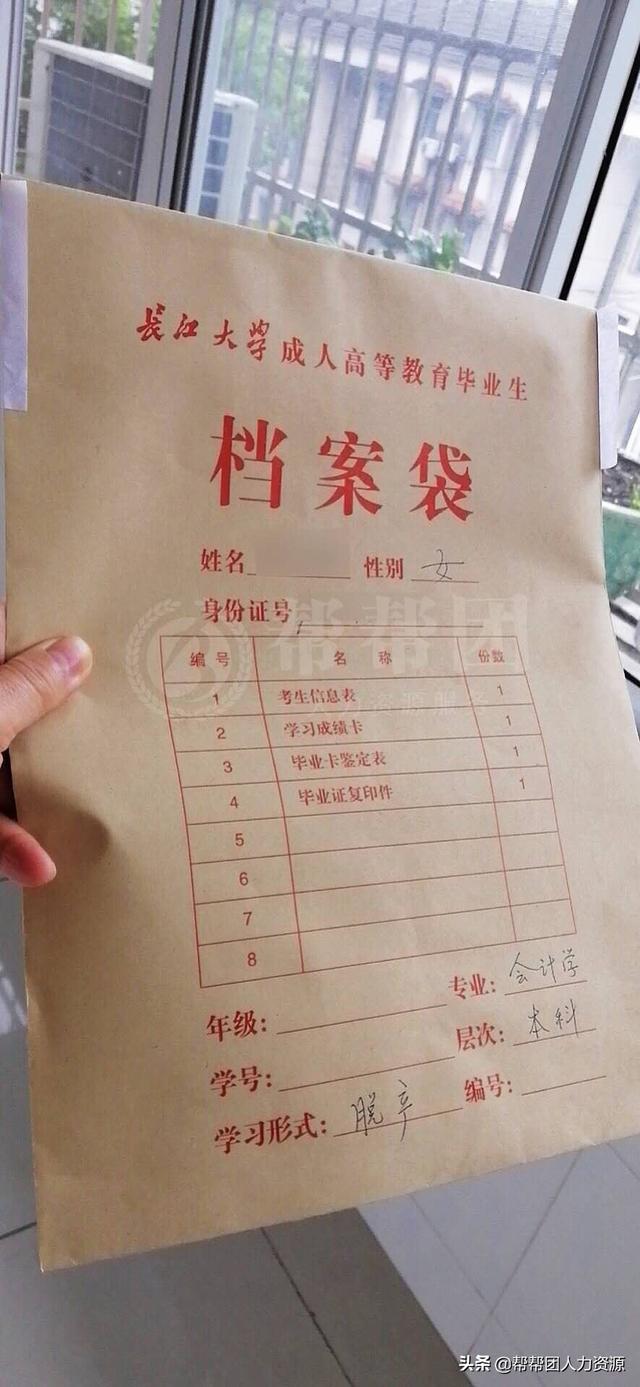 长江大学成人高等教育毕业生
档案袋
姓名 性别 女
身份证号
帮帮团
人力资源服务
编号 名称 份数
1 考生信息表 1
2 学习成绩卡 1
3 毕业卡鉴定表 1
4 毕业证复印件 1
5
6
7
8
年级： 专业：会计学
学号： 层次：本科
学习形式：脱产 编号：
头条 @帮帮团人力资源